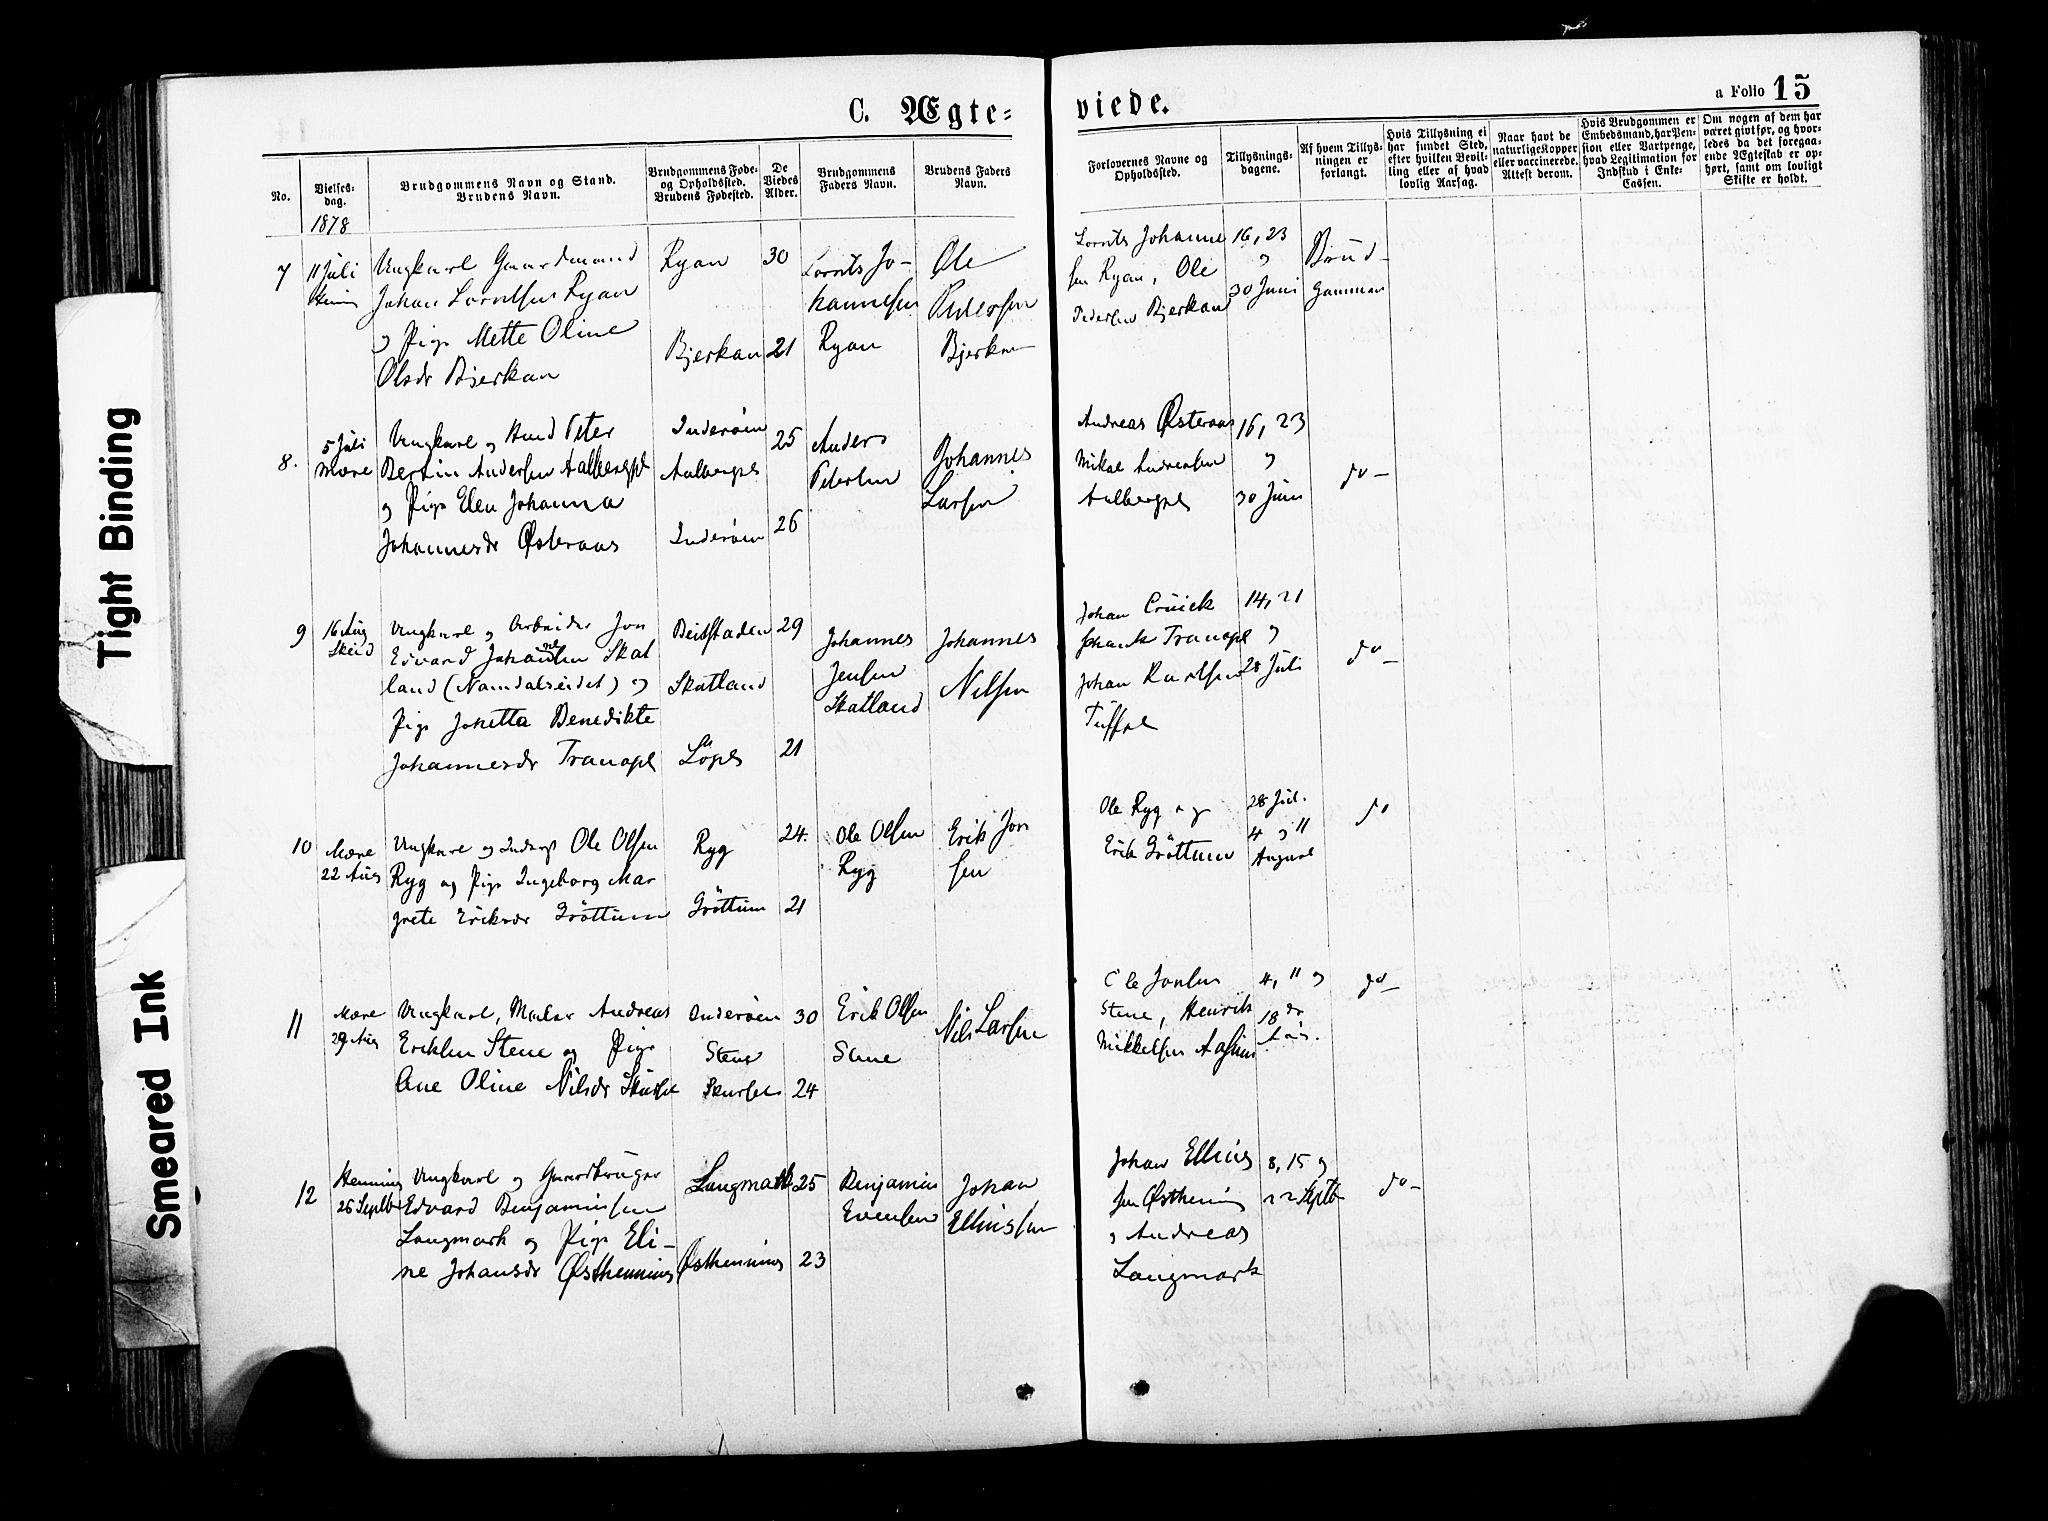 C. Ægte=
viede.
a Folio 15
No.
Vielses-
dag.
Brudgommens Navn og Stand.
Brudens Navn.
Brudgommens Føde-
og Opholdssted.
Brudens Fødested.
De
Viedes
Alder.
Brudgommens
Faders Navn.
Brudens Faders
Navn.
Forlovernes Navne og
Opholdssted.
Tillysnings-
dagene.
Af hvem Tillys-
ningen er
forlangt.
Hvis Tillysning ei
har fundet Sted,
efter hvilken Bevil-
ling eller af hvad
lovlig Aarsag.
Naar havt de
naturlige Kopper
eller vaccinerede.
Attest derom.
Hvis Brudgommen er
Embedsmand, har Pen-
sion eller Vartpenge,
hvad Legitimation for
Indskud i Enke-
Cassen.
Om nogen af dem har
været givtfør, og hvor-
ledes da det foregaa-
ende Ægteskab er op-
hørt, samt om lovligt
Skifte er holdt.
1878
7
11 Juli
Ungkarl Gaardmand
Johan Lorntsen Ryan
og Pige Mette Oline
Olsdr Bjerkan
Ryan
Bjerkan
30
21
Lornts Jo-
hannesen
Ryan
Ole
Pedersen
Bjerkan
Lornts Johanne
sen Ryan, Ole
Pedersen Bjerkan
16, 23
og
30 Juni
Brud-
gommen
8.
5 Juli
Mære
Ungkarl og Smed Peter
Bertin Andersen Aalbergpl
og Pige Elen Johanna
Johannesdr Østeraas
Inderøen
Aalbergpl
Inderøen
25
26
Anders
Petersen
Johannes
Larsen
Andreas Østeraas
Mikal Andreassen
Aalbergpl
16, 23
og
30 Juni
do-
9
16 Aug
Skeid
Ungkarl og Arbeider Jon
Edvard Johannesen Skat
land (Namdalseidet) og
Pige Jonetta Benedikte
Johannesdr Tranapl
Beitstaden
Skatland
29
21
Johannes
Jensen
Skatland
Johannes
Nilsen
Johan
Tranapl
Johan Karlsen
14, 21
og
28 Juli
do-
10
Mære
22 Aug
Ungkarl og Inderst Ole Olsen
Ryg og Pige Ingeborg Mar
grete Eriksdr Gröttum
Ryg
Gröttum
24.
21
Ole Olsen
Ryg
Erik Jon
sen
Ole Ryg og
Erik Gröttum
28 Jul.
4 og 11
August
do
11
Mære
29 Aug
Ungkarl, Maler Andreas
Eriksen Stene og Pige
Ane Oline Nilsdr
Inderøen
Stene
30
24
Erik Olsen
Stene
Nils Larsen
Ole Jonsen
Stene, Henrik
Mikkelsen
4, 11 og
18 dr
do-
12
Henning
26 Septbr
Ungkarl og Gaardbruger
Edvard Benjaminsen
Langmark og Pige Eli-
ne Johansdr Østhenning
Langmark
Østhenning
25
23
Benjamin
Evensen
Johan
Ellingsen
Johan Elling
sen Østhenning
og Andreas
Langmark
8, 15 og
22 Septbr
do-
Tight Binding
Smeared Ink